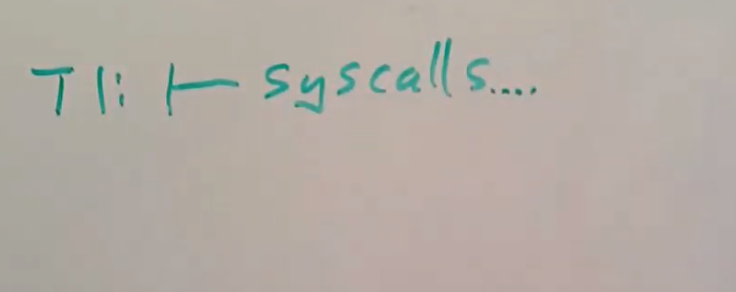 T1: ⊢ syscalls....